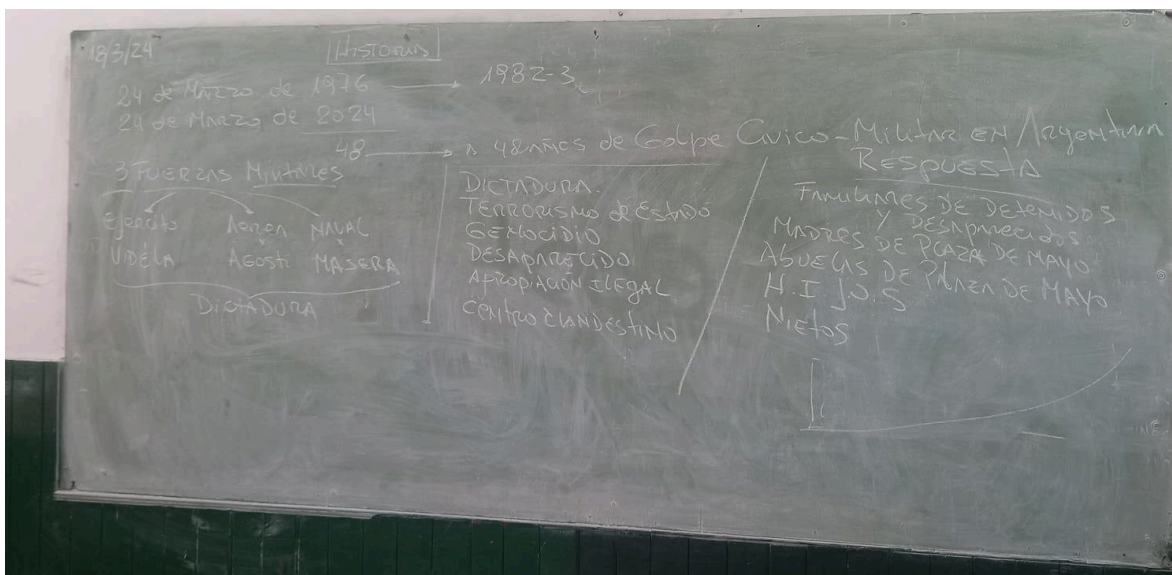 18/3/24
Historia
24 de Marzo de 1976 → 1982-3
24 de Marzo de 2024
48 → 48 años de Golpe Cívico-Militar en Argentina
3 Fuerzas Militares
Ejercito Aerea Naval
Videla Agosti Masera
Dictadura
Dictadura.
Terrorismo de Estado
Genocidio
Desaparecido
Apropiación Ilegal
Centro Clandestino
Respuesta
Familiares de Detenidos
y Desaparecidos
Madres de Plaza de Mayo
Abuelas de Plaza de Mayo
H.I.J.O.S
Nietos